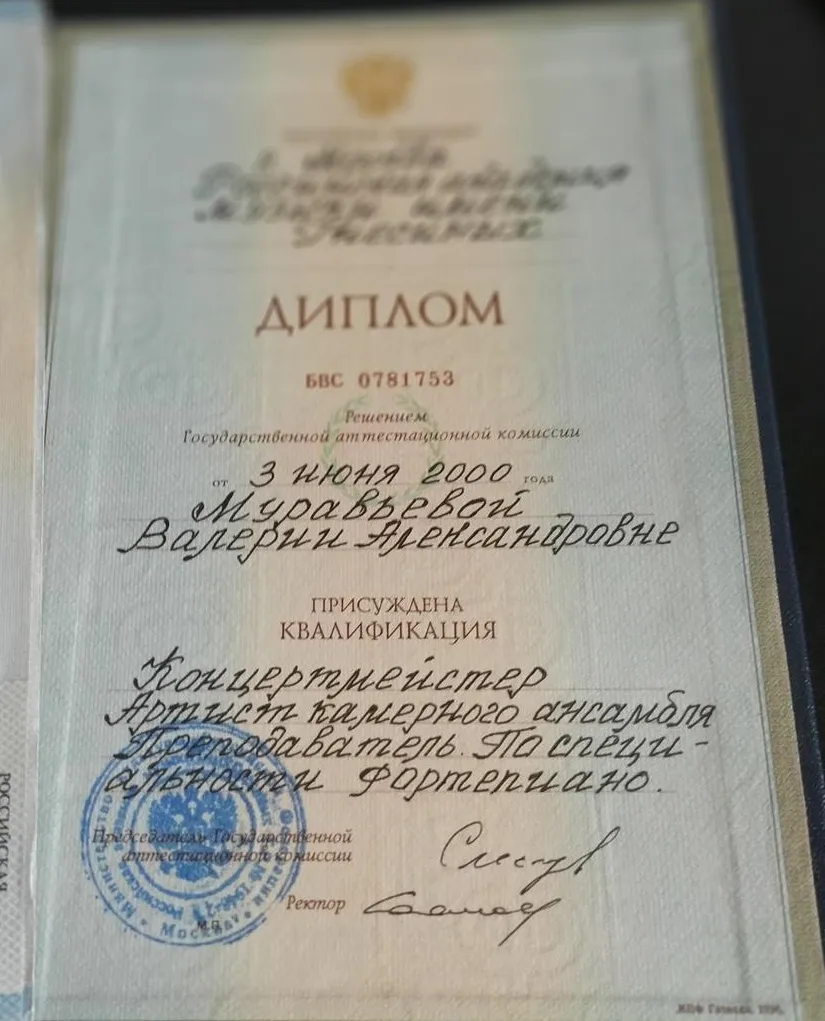 г. Москва
Российская академия
музыки имени
Гнесиных
ДИПЛОМ
БВС 0781753
Решением
Государственной аттестационной комиссии
от 3 июня 2000 года
Муравьевой
Валерии Александровне
ПРИСУЖДЕНА
КВАЛИФИКАЦИЯ
Концертмейстер
Артист камерного ансамбля
Преподаватель. По специ-
альности фортепиано.
Председатель Государственной
аттестационной комиссии
Ректор
М.П.
Москва
РОССИЙСКАЯ